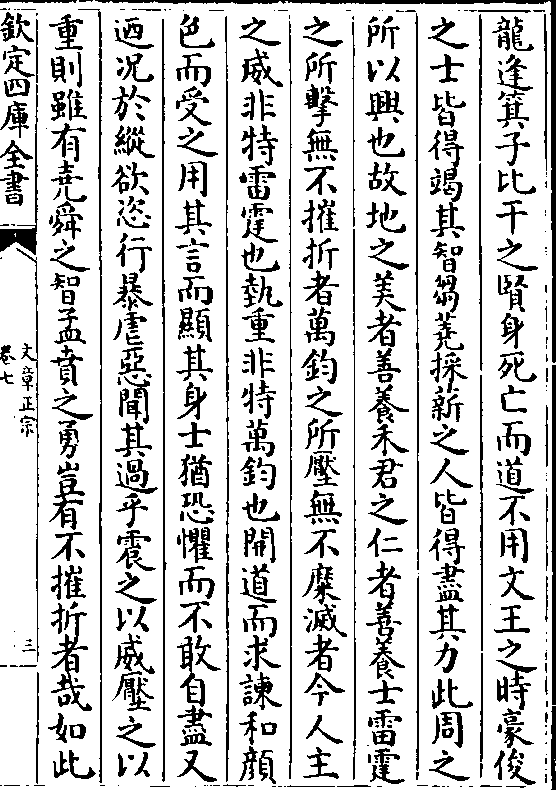 龍逢箕子比干之賢身死亡而道不用文王之時豪俊
之士皆得竭其智芻蕘採薪之人皆得盡其力此周之
所以興也故地之美者善養禾君之仁者善養士雷霆
之所擊無不摧折者萬鈞之所壓無不糜滅者今人主
之威非特雷霆也執重非特萬鈞也開道而求諫和顔
色而受之用其言而顯其身士猶恐懼而不敢自盡又
迺况於縱欲恣行暴虐惡聞其過乎震之以威壓之以
重則雖有堯舜之智孟賁之勇豈有不摧折者哉如此
欽定四庫全書
文章正宗
卷七
三